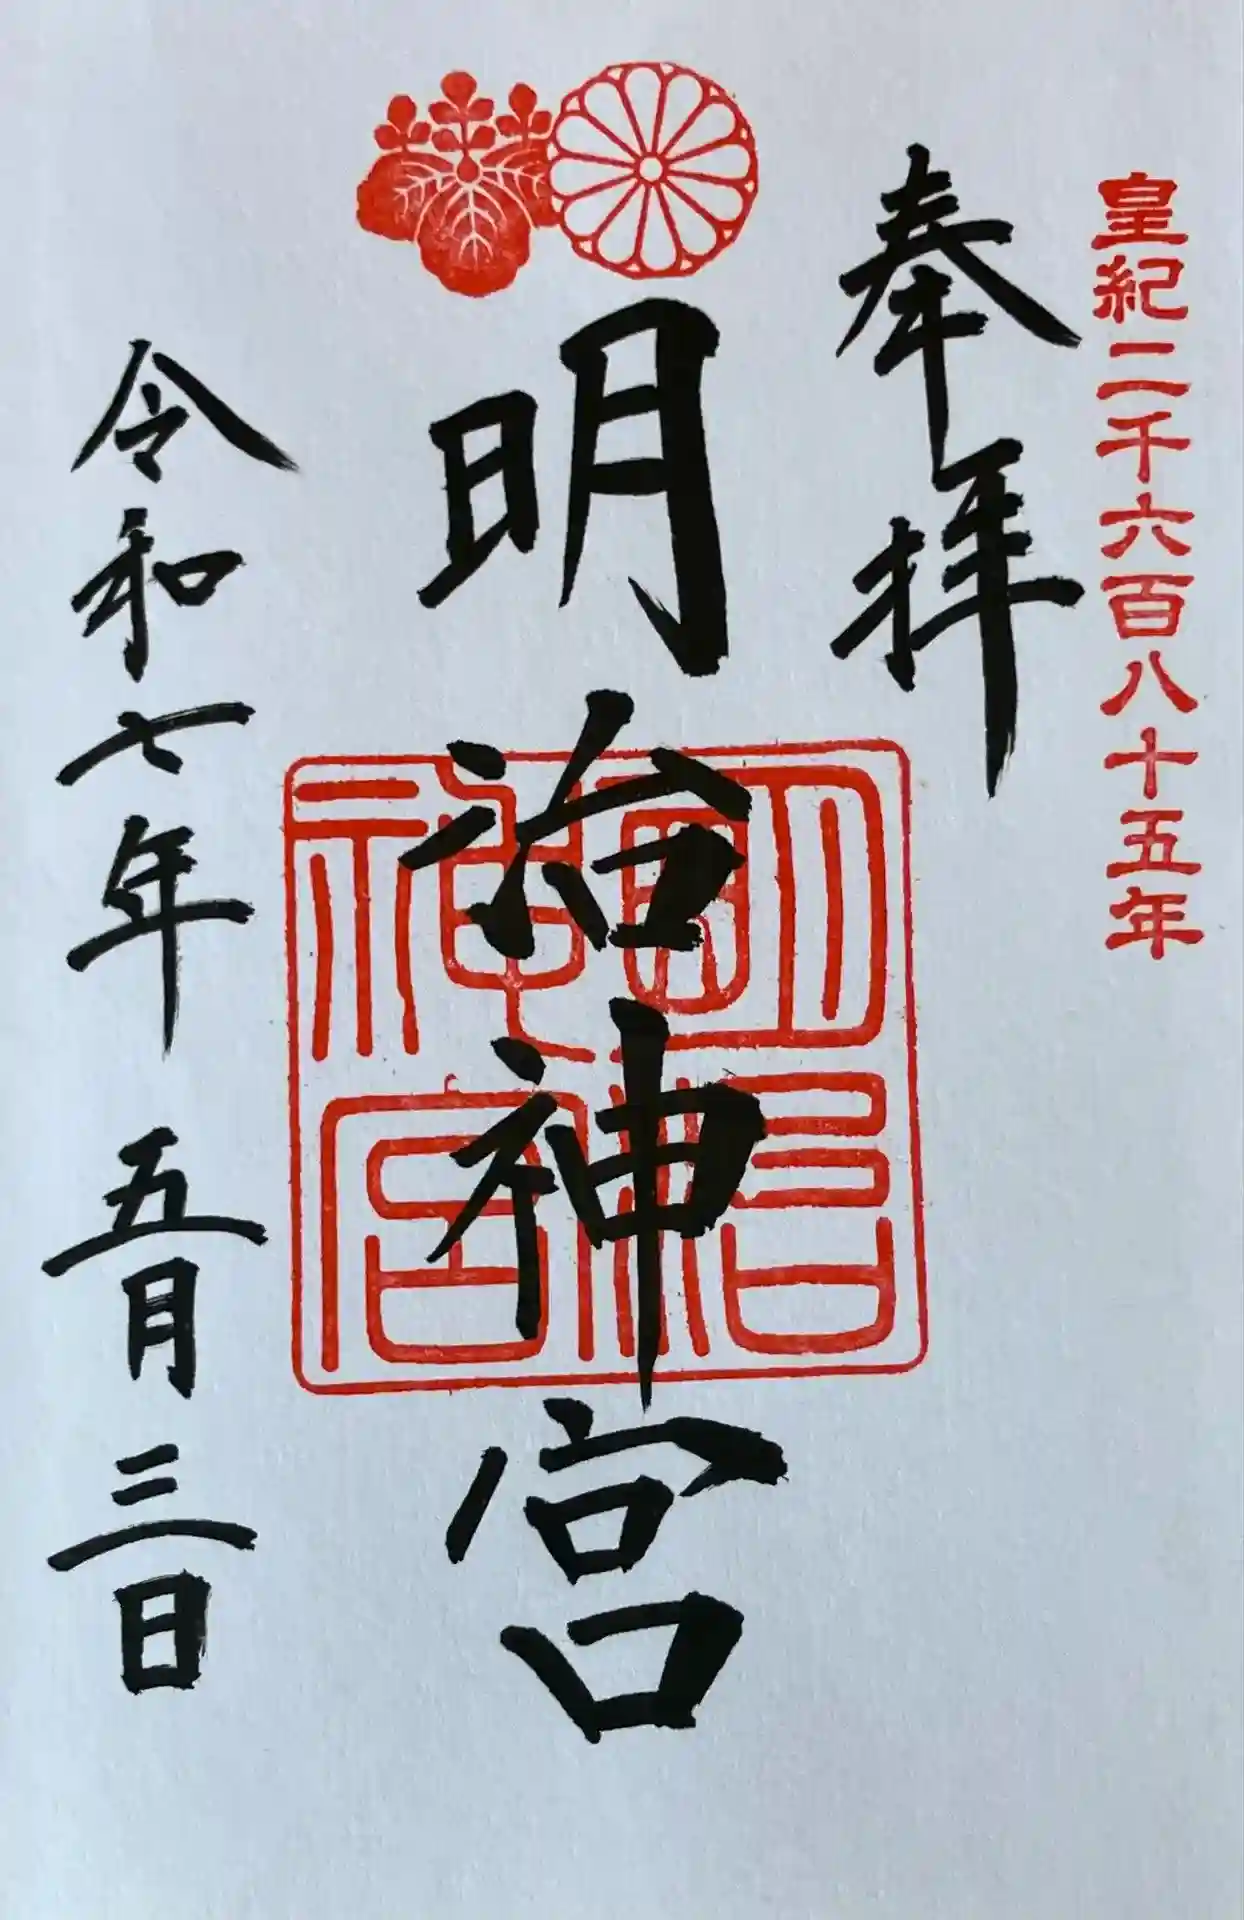 皇紀二千六百八十五年
奉拝
明治神宮
明治神宮
令和七年 五月 三日